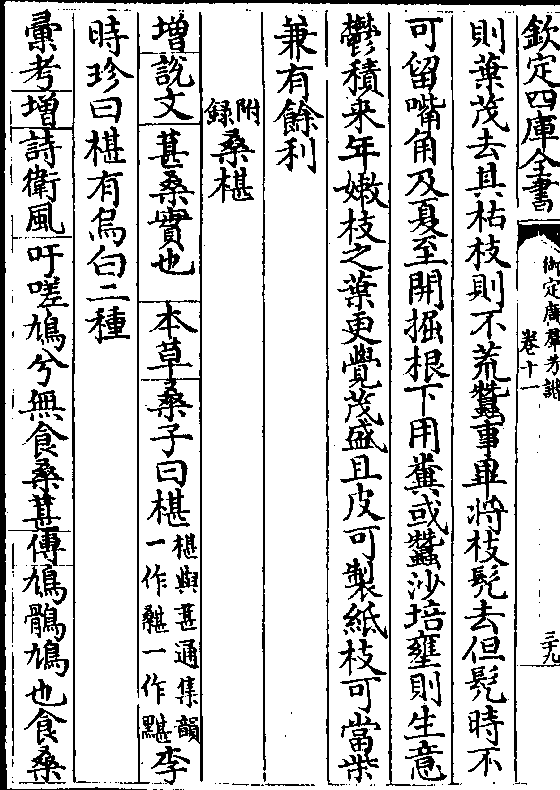 欽定四庫全書
御定廣羣芳譜
卷十一
三十九
則葉茂去其枯枝則不荒蠶事畢將枝髡去但髡時不
可留嘴角及夏至開掘根下用糞或蠶沙培壅則生意
鬱積来年嫩枝之葉更覺茂盛且皮可製紙枝可當柴
兼有餘利
附錄桑椹
增說文葚桑實也 本草桑子曰椹椹與葚通集韻一作𪏆一作黮李
時珍曰椹有烏白二種
彚考增詩衛風吁嗟鳩兮無食桑葚傳鳩鶻鳩也食桑